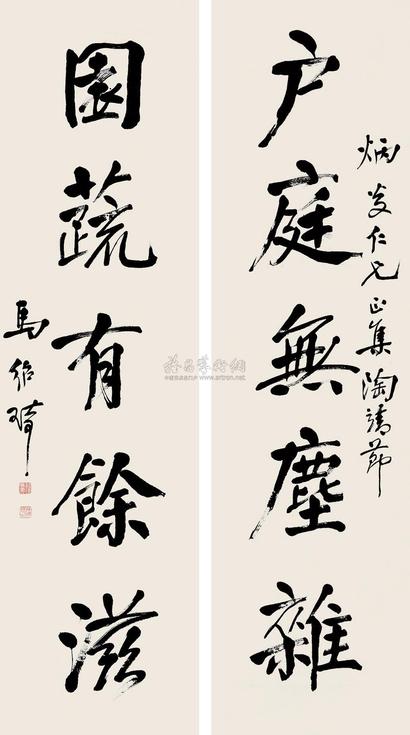 炳炎仁兄正集陶靖節
户庭無塵雜
園蔬有餘滋
馬紹瑀
www.artron.net